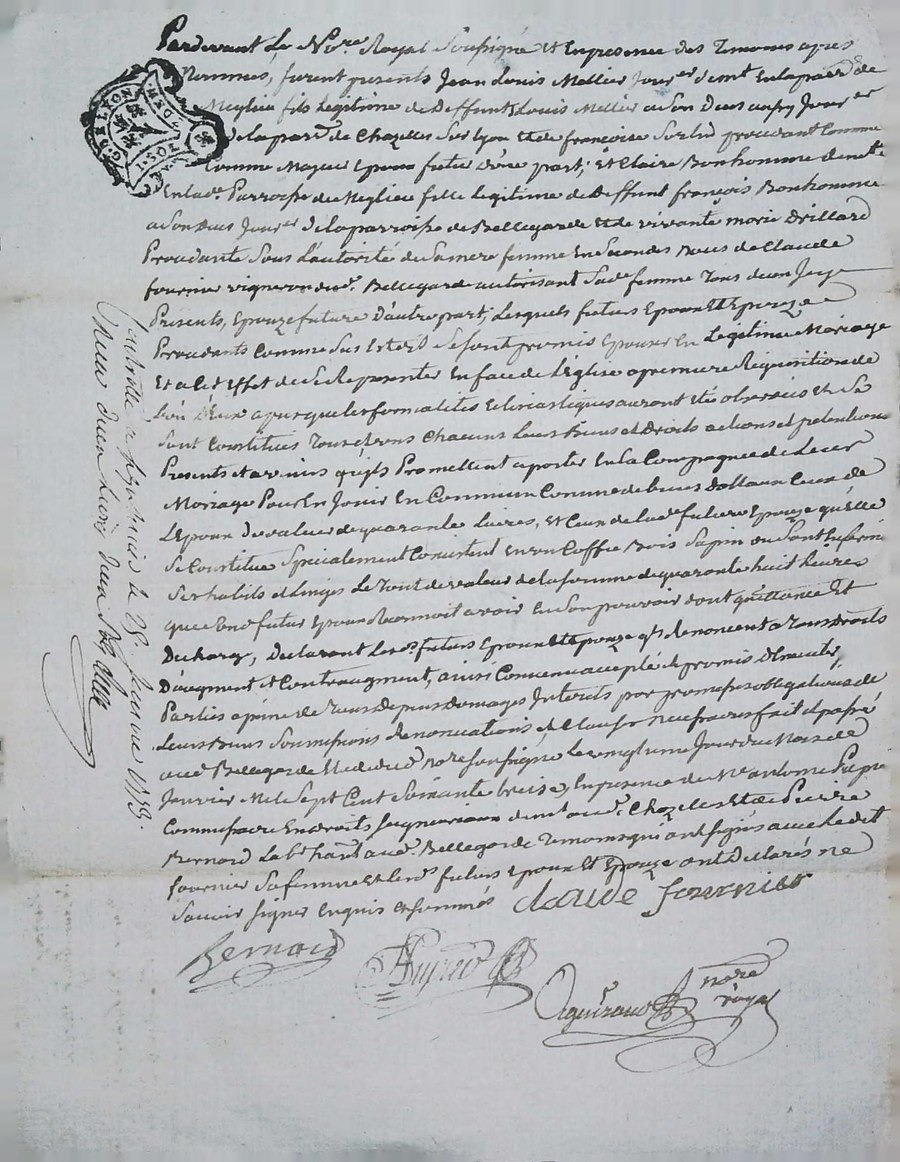 Pardevant Le No.re Royal Soussigné et En presence des Temoins apres
Nommés, furent presents Jean Louis Mellier Jour.er dem.t En la par.se de
Meylieu fils Legitime de Deffunt Louis Mellier a son Deces Jour.er
de la par.se de Chazelles Sur Lyon et de françoise procedant Comme
Comme Majeur Epoux futur d'une part; Et Claire Bonhomme dem.te
En lad.e Parroisse de Meylieu fille Legitime de Deffunt françois Bonhomme
a Son Deces Jour.er de la parroisse de Bellegarde et de vivante marie Drillard
Procedante Sous L'autorité de Sa mere femme En Secondes Noces de Claude
fournier vigneron dud. Bellegarde autorisant Sad.e femme Tous deux Icy
Presents, Epouze future D'autre part; Lesquels futurs Epoux Et Epouze
Procedants Comme Sus Est dit Se sont promis Epouser En Legitime Mariage
Et a Cet Effet de Se Representer En face de L'Eglise a premiere Requisition de
L'un D'Eux apres que les formalités Eclesiastiques auront Eté observées Et Se
Sont Constitués Tous Chacuns Leurs Biens et Droits actions et pretentions
Presents et avenirs qu'ils Promettent aporter En la Compagnie de Leur
Mariage Pour En Jouir En Commun Comme de biens Ceux de
L'Epoux De valeur de quarante Livres, et Ceux de lad.e future Epouze qu'elle
Se Constitue Specialement Consistent En un Coffre Bois Sapin ou Sont Enfermés
Ses habits et Linges Le Tout de valeur de la somme de quarante huit Livres
que led. futur Epoux Reconnoit avoir En Son pouvoir dont quittance Et
Decharge, Declarant Lesd. futurs Epoux Et Epouze qu'ils Renoncent a Tous Droits
D'augment et Contraugment, ainsi Convenu accepté et promis
Parties a peine de Tous Depens Domages Interets par promesses obligations de
Leurs Biens Soumissions Renonciations et Clauses fait et passé
aud. Bellegarde no.re Soussigné Le vingtieme Jour du Mois de
Janvier Mil Sept Cent Soixante treize, En presence de M.e antoine
Commissaire En droits Seigneuriaux dem.t aud. Chazelles Et de Pierre
Bernard Lab.r hab.t aud. Bellegarde Temoins qui ont signés avec Led.t
fournier Sa femme et Lesd.s futurs Epoux Et Epouze ont Declarés ne
Savoir Signer Enquis et Sommés Claude fournier
Bernard
no.re
royal
le 25 Janvier 1773.